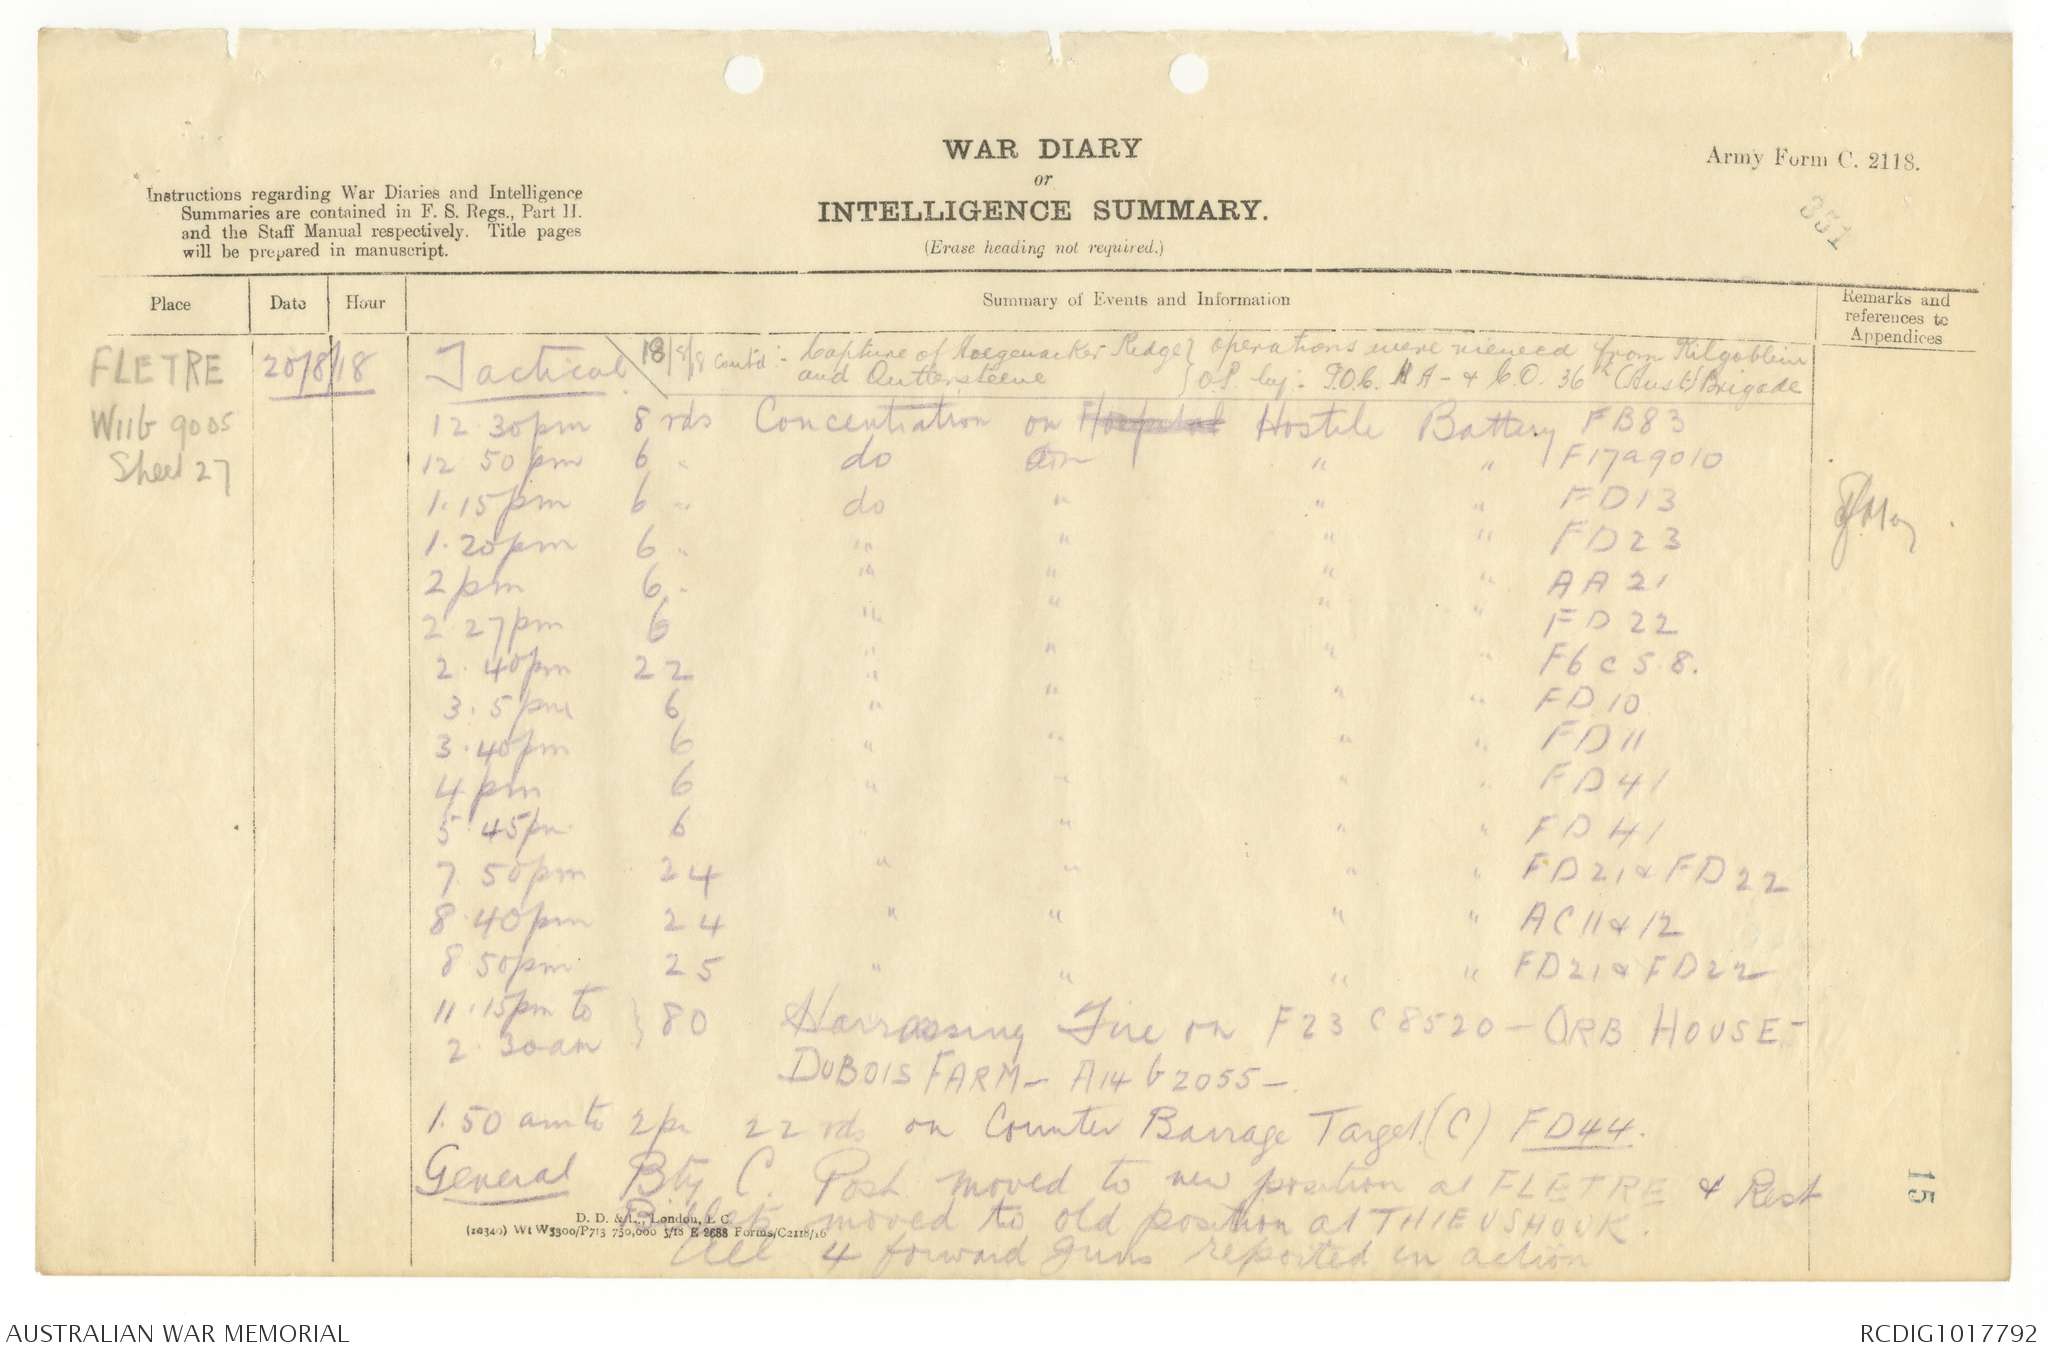 WAR DIARY
or
INTELLIGENCE SUMMARY.
(Erase heading not required.)
Army Form C. 2118.
351
Instructions regarding War Diaries and Intelligence
Summaries are contained in F. S. Regs., Part II.
and the Staff Manual respectively. Title pages
will be prepared in manuscript.
Place Date Hour Summary of Events and Information Remarks and references to Appendices
FLETRE
W11b 9005
Sheet 27
20/8/18
Tactical
18/8/18 Cont'd:- Capture of Hoegenacker Ridge} operations were viewed from Kilgobbin
and Outtersteene } O.P. by:- G.O.C. H A - & C.O. 36th (Aust) Brigade
12.30pm 8 rds Concentration on Hostile Battery FB83
12 50 pm 6 " do on " " F17a9010
1.15pm 6 " do " " " FD13
1.20pm 6 " " " " " FD23
2 pm 6 " " " " " AA 21
2.27pm 6 " " " " FD 22
2.40pm 22 " " " " F6 c 5.8.
3.5pm 6 " " " " FD 10
3.40pm 6 " " " " FD 11
4 pm 6 " " " " FD 41
5.45pm 6 " " " " FD 41
7.50pm 24 " " " " FD21 & FD22
8.40pm 24 " " " " AC 11 & 12
8.50pm 25 " " " " FD21 & FD22
11.15pm to
2.30am } 80 Harrassing Fire on F23 C8520 - ORB HOUSE -
DUBOIS FARM - A14 b 2055 -.
1.50 am to 2pm 22 rds on Counter Barrage Target (C) FD44.
General Bty C. Post moved to new position at FLETRE & Rest
Billets moved to old position at THIEUSHOUK.
All 4 forward guns reported in action
15
D. D. & L., London, E.C.
(10340) Wt W5300/P713 750,000 3/18 E 2688 Forms/C2118/16
AUSTRALIAN WAR MEMORIAL
RCDIG1017792